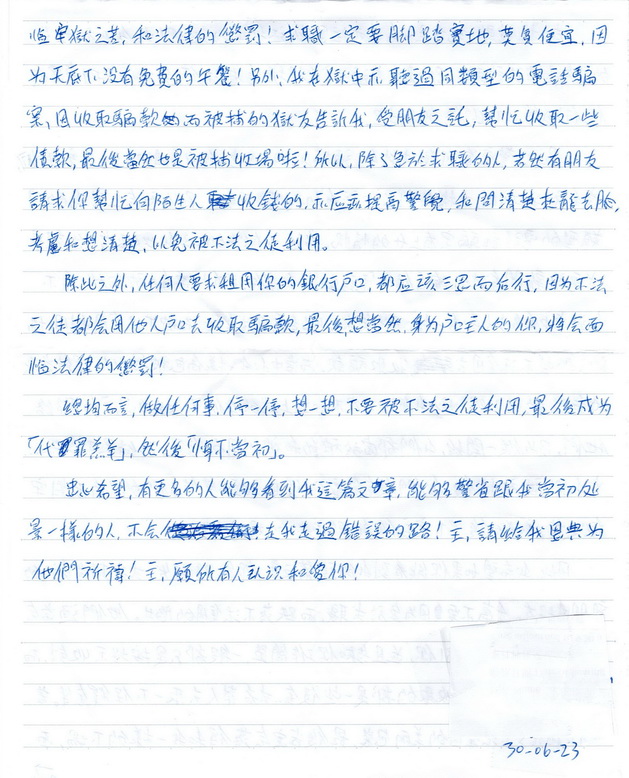 临牢獄之苦，和法律的懲罰！求職一定要腳踏實地，莫貪便宜，因
为天底下没有免費的午餐！另外，我在獄中亦聽過同類型的電話騙
案，因收取騙款而被捕的獄友告訴我，受朋友之託，幫忙收取一些
債款，最後當然也是被捕收場啦！所以，除了急於求職的人，若然有朋友
請求你幫忙向陌生人收錢的，亦应該提高警覺，和問清楚來龍去脈，
考慮和想清楚，以免被不法之徒利用。
除此之外，任何人要求租用你的銀行戶口，都应該三思而后行，因为不法
之徒都会用他人戶口去收取騙款，最後，想當然，身为户主人的你，將会面
临法律的懲罰！
總均而言，做任何事，停一停，想一想，不要被不法之徒利用，最後成为
「代罪羔羊」，然後「悔不當初」。
忠心希望，有更多的人能够看到我這篇文章，能够警省跟我當初处
景一樣的人，不会走我走過錯誤的路！主，請給我恩典为
他們祈禱！主，願所有人认识和愛你！
30-06-23